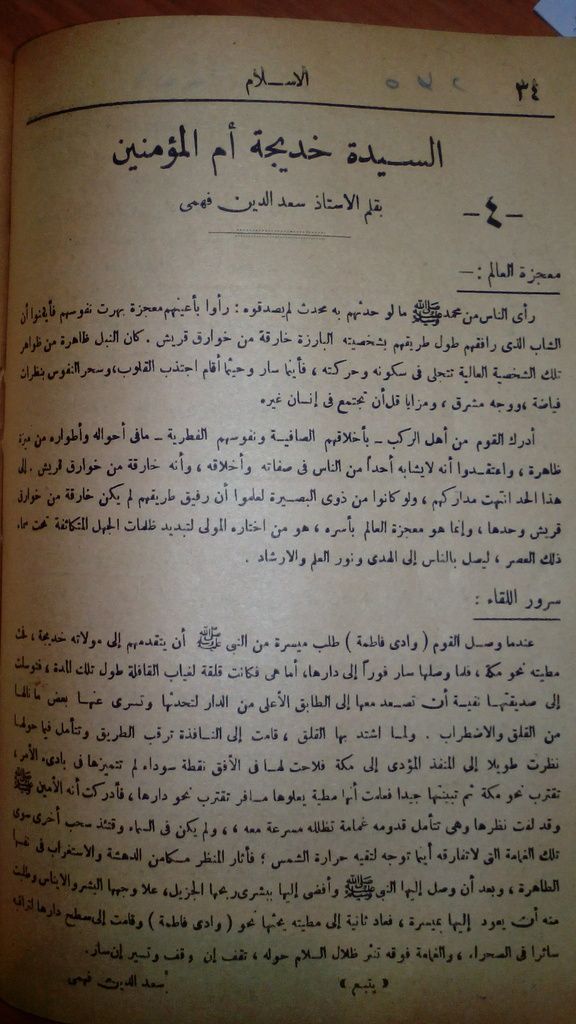 ٣٤
الاســلام
الســيدة خديجة أم المؤمنين
— ٤ —
بقلم الاستاذ سعد الدين فهمى
معجزة العالم : —
رأى الناس من محمد ﷺ ما لو حدثهم به محدث لم يصدقوه : رأوا بأعينهم معجزة بهرت نفوسهم فأيقنوا أن
الشاب الذى رافقهم طول طريقهم بشخصيته البارزة خارقة من خوارق قريش . كان النبل ظاهرة من ظواهر
تلك الشخصية العالية تتجلى فى سكونه وحركته ، فأينما سار وحيثما أقام اجتذب القلوب ، وسحر النفوس بنظرات
فياضة ، ووجه مشرق ، ومزايا قل أن تجتمع فى إنسان غيره
أدرك القوم من أهل الركب ـ بأخلاقهم الصافيـة ونفوسهم الفطرية ـ مافى أحواله وأطواره من ميزة
ظاهرة ، واعتقـدوا أنه لايشابه أحداً من الناس فى صفاته وأخلاقه ، وأنه خارقة من خوارق قريش . إلى
هذا الحد انتهت مداركهم ، ولو كانوا من ذوى البصـيرة لعلموا أن رفيق طريقهم لم يكن خارقة من خوارق
قريش وحدها ، وإنما هو معجزة العالم بأسره ، هو من اختاره المولى لتبديد ظلمات الجهل المتكاثفة تحت سماء
ذلك العصر ، ليصل بالناس إلى الهدى ونور العلم والارشاد .
سرور اللقاء :
عندما وصـل القوم ( وادى فاطمة ) طلب ميسرة من النبى ﷺ أن يتقدمهم إلى مولاته خديجة ، فحث
مطيته نحو مكة ، فلما وصلها سار فوراً إلى دارها، أما هى فكانت قلقة لغياب القافلة طول تلك المدة ، فتوسلت
إلى صديقتهـا نفيسة أن تصـعد معها إلى الطابق الأعلى من الدار لتحدثها وتسرى عنهـا بعض ما نالها
من القلق والاضطراب . ولمـا اشتد بها القلق ، قامت إلى النـافذة ترقب الطريق وتتأمل فيما حولهـا
نظرت طويلا إلى المنفذ المؤدى إلى مكة فلاحت لهـا فى الأفق نقطة سوداء لم تتميزها فى بادىء الأمر ،
تقترب نحو مكة ثم تبينتها جيدا فعلمت أنها مطية يعلوها مسافر تقترب نحو دارها ، فأدركت أنه الأمين ﷺ
وقد لفت نظرها وهى تتأمل قدومه غمامة تظلله مسرعة معه ، ، ولم يكن فى السماء وقتئذ سحب أخرى سوى
تلك الغمامة التى لاتفارقه أينما توجه لتقيه حرارة الشمس ؛ فأثار المنظر مـكامن الدهشة والاستغراب فى نفسها
الطاهرة ، وبعد أن وصل إليها النبى ﷺ وأفضى إليها ببشرى ربحها الجزيل، علا وجهها البشر والايناس وطلبت
منه أن يعود إليها بميسرة ، فعاد ثانية إلى مطيته يحثها نحو ( وادى فاطمة ) وقامت إلى سطح دارها لتراقبه
سائرا فى الصحراء ، والغمامة فوقه تنثر ظلال السلام حوله ، تقف إن وقف وتسير إن سار.
« يتبع »
سعد الدين فهمى